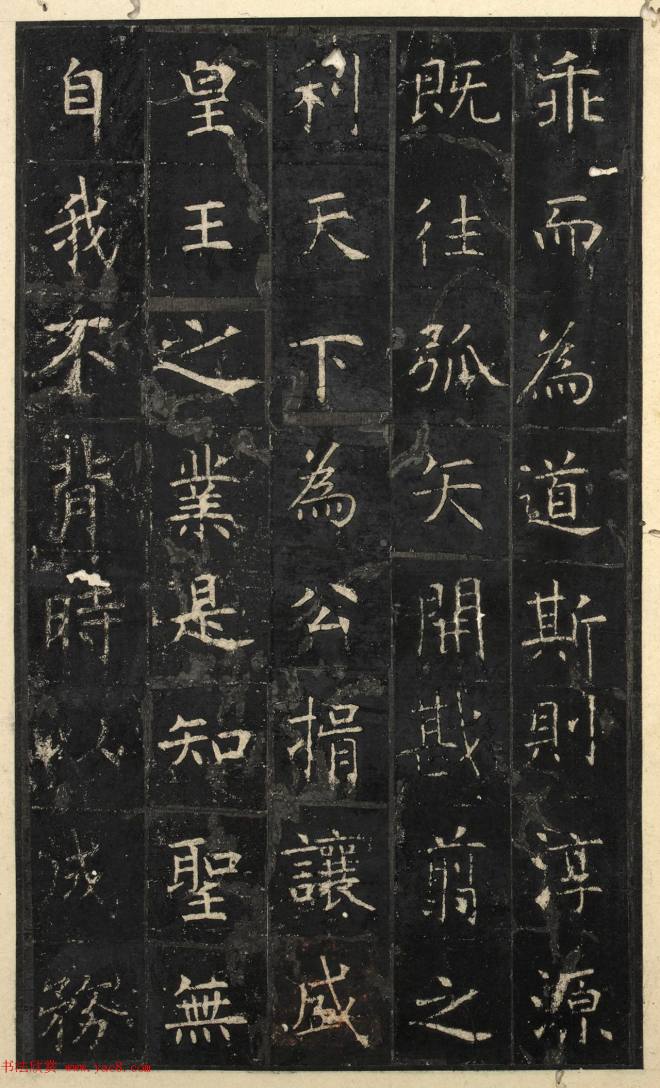 乖而為道斯則淳源
既往弧矢開戡翦之
利天下為公揖讓盛
皇王之業是知聖無
自我不背時以成務
书法欣赏 www.yac8.com